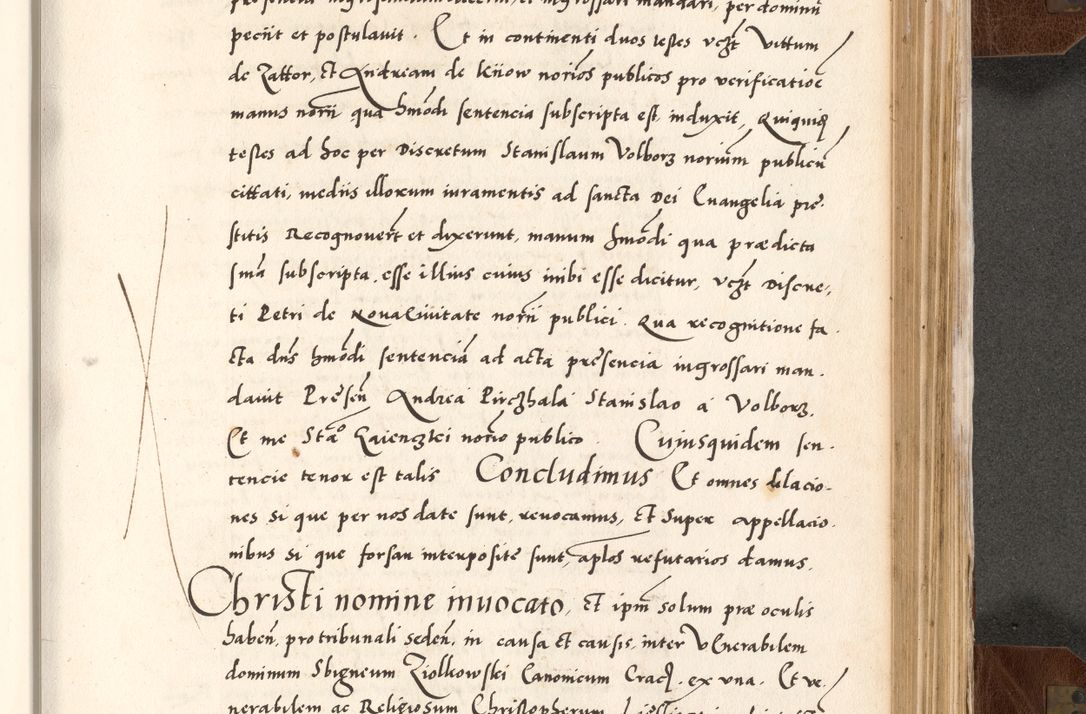 peciit et postulavit. Et in continenti duos testes vczt Vittum
de Zattor, Et Andream de Kiiow norios publicos pro verificatioe
manus norii qua hmodi sentencia subscripta est induxit, Quiquidem
testes ad hoc per Discretum Stanislaum Volborz norium publicu
cittati, mediis illorum iuramentis ad sancta Dei Euangelia pre-
stitis Recognovert et dixerunt, manum hmodi qua prædicta
sma subscripta esse illius cuius inibi esse dicitur, vczt Discre-
ti Petri de Nova Civitate norii publici. Qua recognitione fa-
cta dns hmodi sentenciā ad acta presencia ingrossari man-
davit Presen Andrea Pirczhala Stanislao a Volborz,
Et me Stao Gaienczki norio publico. Cuiusquidem sen-
tencie tenor est talis Concludimus Et omnes delacio-
nes si que per nos date sunt, revocamus, Et Super appellacio-
nibus si que forsan interposite sunt, aplos refutatorios damus.
Christi nomine invocato, Et ipm solum præ oculis
haben, pro tribunali seden, in causa Et causis, inter Venerabilem
dominum Sbigneum Ziolkowski Canonicum Crac, ex una, Et ve-
nerabilem ac Religiosum Christopherum